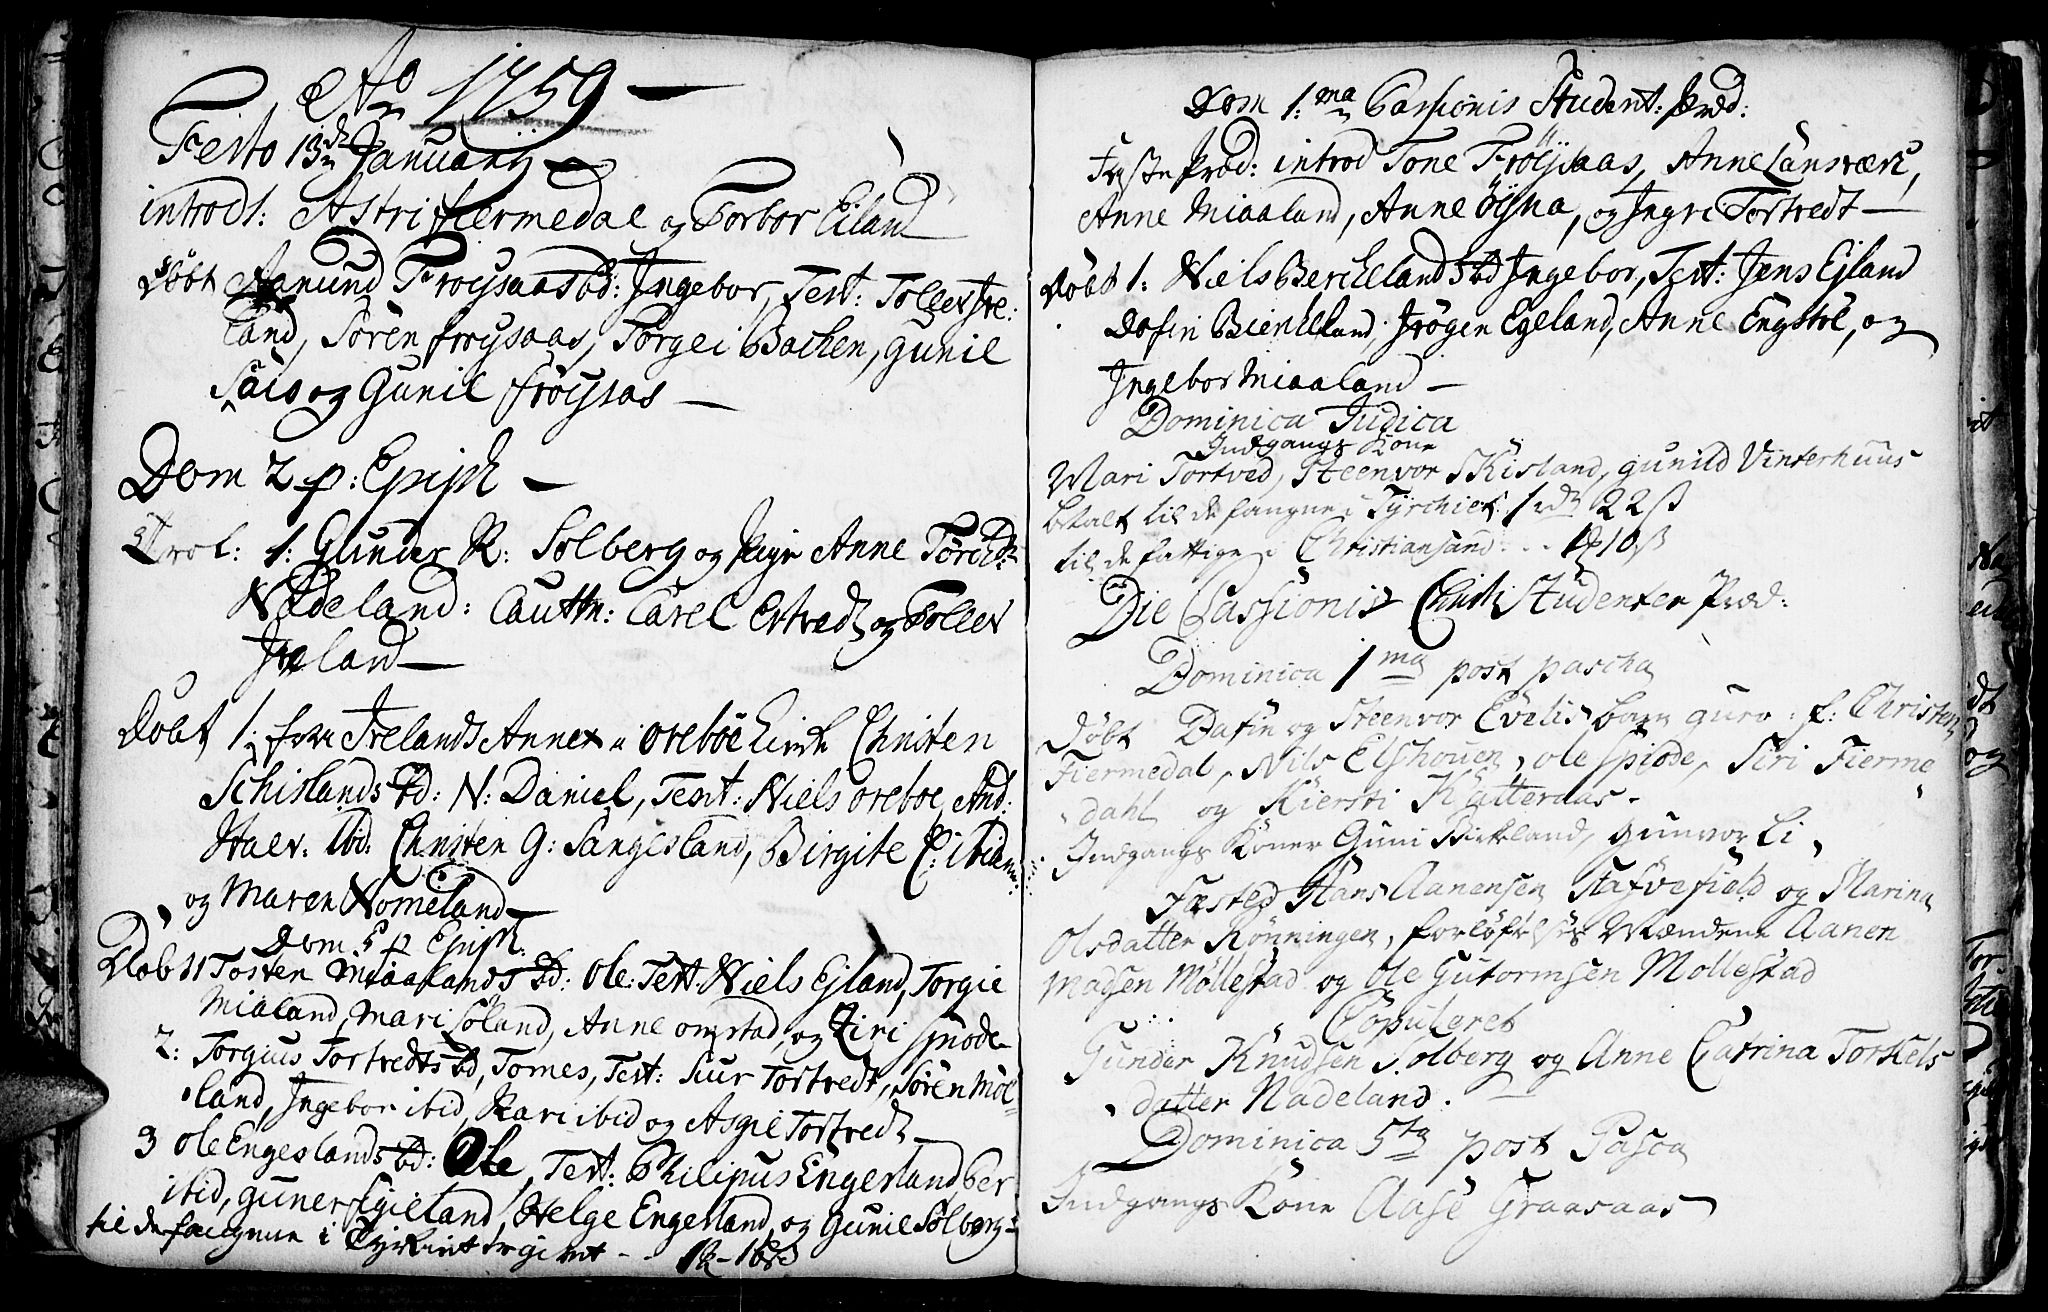 Ao 1759 —
Festo 13de Januarij —
introd: Astri fiermedal og Torbor Eiland
Döbt Aanund Fröysaas bd: Ingebor, Test: Tollev Ire:
land, Sören fröysaas, Torgei Bachen, Gunil
og Gunil fröysas —
Dom 2 p: Epiph —
Trol: 1: Gunder K: Solberg og Pige Anne
Nadeland: Cautn: Tarel Ertvedt og Tollev
Ireland —
Döbt 1: fra Irelands Annex i oreböe Kirke Christen
Schislands bd: N: Daniel, Test: Niels oreboe, And:
Ibd: Christen G: Sangesland, Birgite C: ibidem
og Maren Nomeland —
Dom 5 p Epiph.
Döbt 1 Tosten Miaalands bd: Ole: Test: Niels Ejland, Torgie
Mialand, Mari Söland, Anne omstad, og Siri Spiöde
2: Torgius Tortvedts bd, Tomes, Test: Siur Tortvedt, Sören Möl
land, Ingebor ibid, Kari ibid og Asgie Tortvedt —
3 Ole Engeslands bd: Ole, Test: Philipus Engesland, Per
ibid, guner Egieland, Helge Engesland, og Gunil Solberg
til de fangne i Tyrkiet er givet - - 1
Dom 1: ma Passionis Student: Præd:
Præd: introd Tone Fröysaas, Anne Lansværc,
Anne Miaaland, Anne Öÿna, og Ingri Tortvedt —
Döbt 1: Niels Berchelands bd Ingebor, Test: Jens Ejland
Dafin Bierkeland, Jrögen Egeland, Anne Engstöl, og
Ingebor Miaaland —
Dominica Judica
Indgangs Kone
Mari Tortved, Steenvor Skisland, gunild Vinterhuus
betalt til de fangne i Tyrchiet 1 rd 22 ß
til de fattige i Christiansand: . . 10 ß
Die Passionis Christi Studenten Præd:
Dominica 1ma post pascha
Döbt Dafin og Steenvor Evelis barn guro: f: Christen
Fiermedal, Nils Elshouen, ole Spiöde, Siri Fierme
dahl og Kiersti Katteraas.
Indgangs Koner Guni Birkeland, gunvor Li,
Fæsted Hans Aanensen Stafvefield og Marina
Olsdatter Rönningen, forlöfvelses Mændene Aanen
Madsen Möllestad og Ole Gutormsen Mollestad
Copuleret
Gunder Knudsen Solberg og Anne Catrina Torkels
datter Nadeland.
Dominica 5ta post Pasca
Indgangs Kone Aase Graasaas